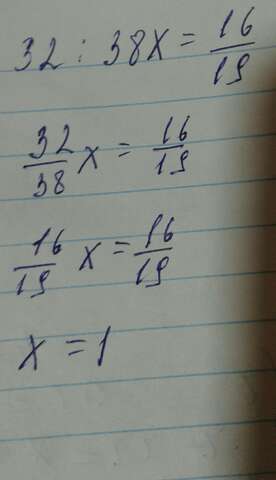 32 : 38x = 16/19
32/38 x = 16/19
16/19 x = 16/19
x = 1